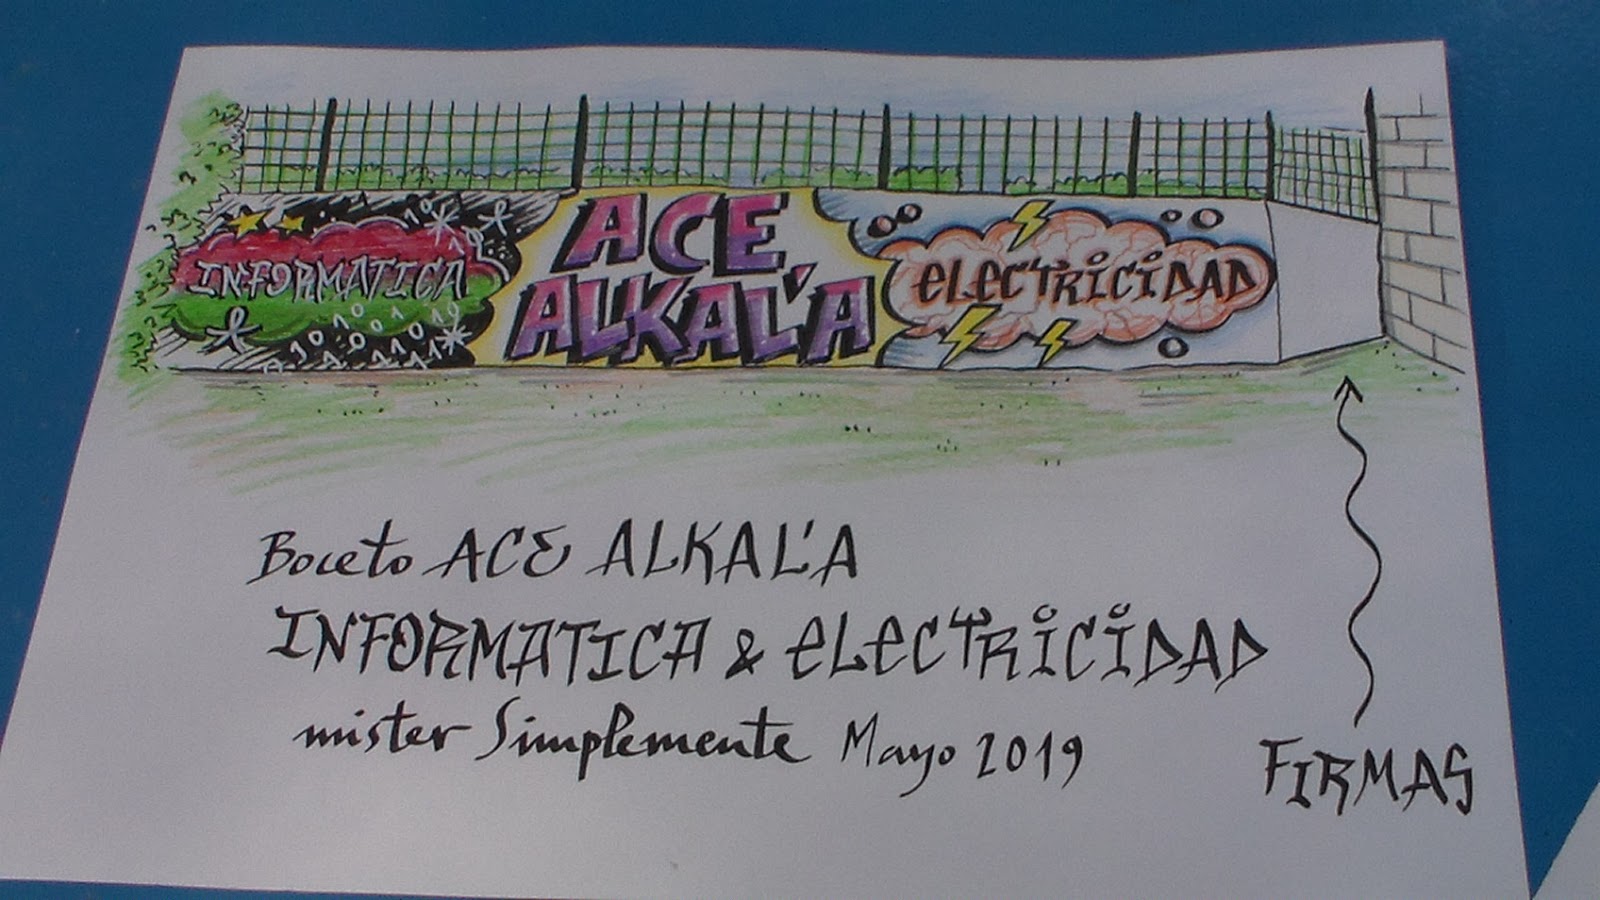 INFORMATICA
ACE
ALKAL'A
ELECTRICIDAD
Boceto ACE ALKAL'A
INFORMATICA & ELECTRICIDAD
mister Simplemente Mayo 2019
FIRMAS